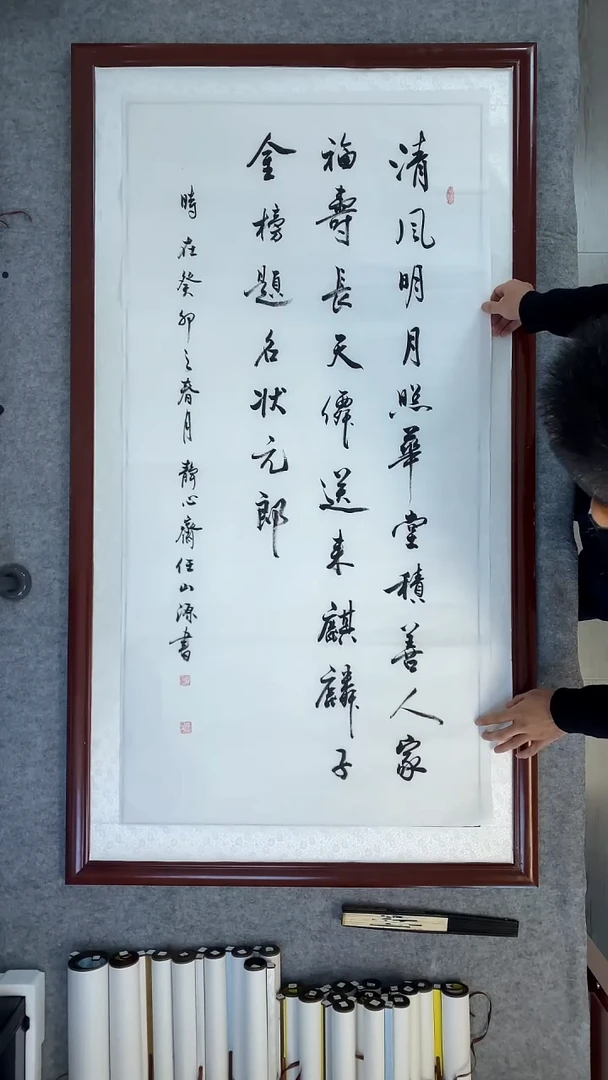 清風明月照華堂積善人家
福壽長天僊送来麒麟子
金榜題名状元郎
時在癸卯之春月靜心齋任山源書